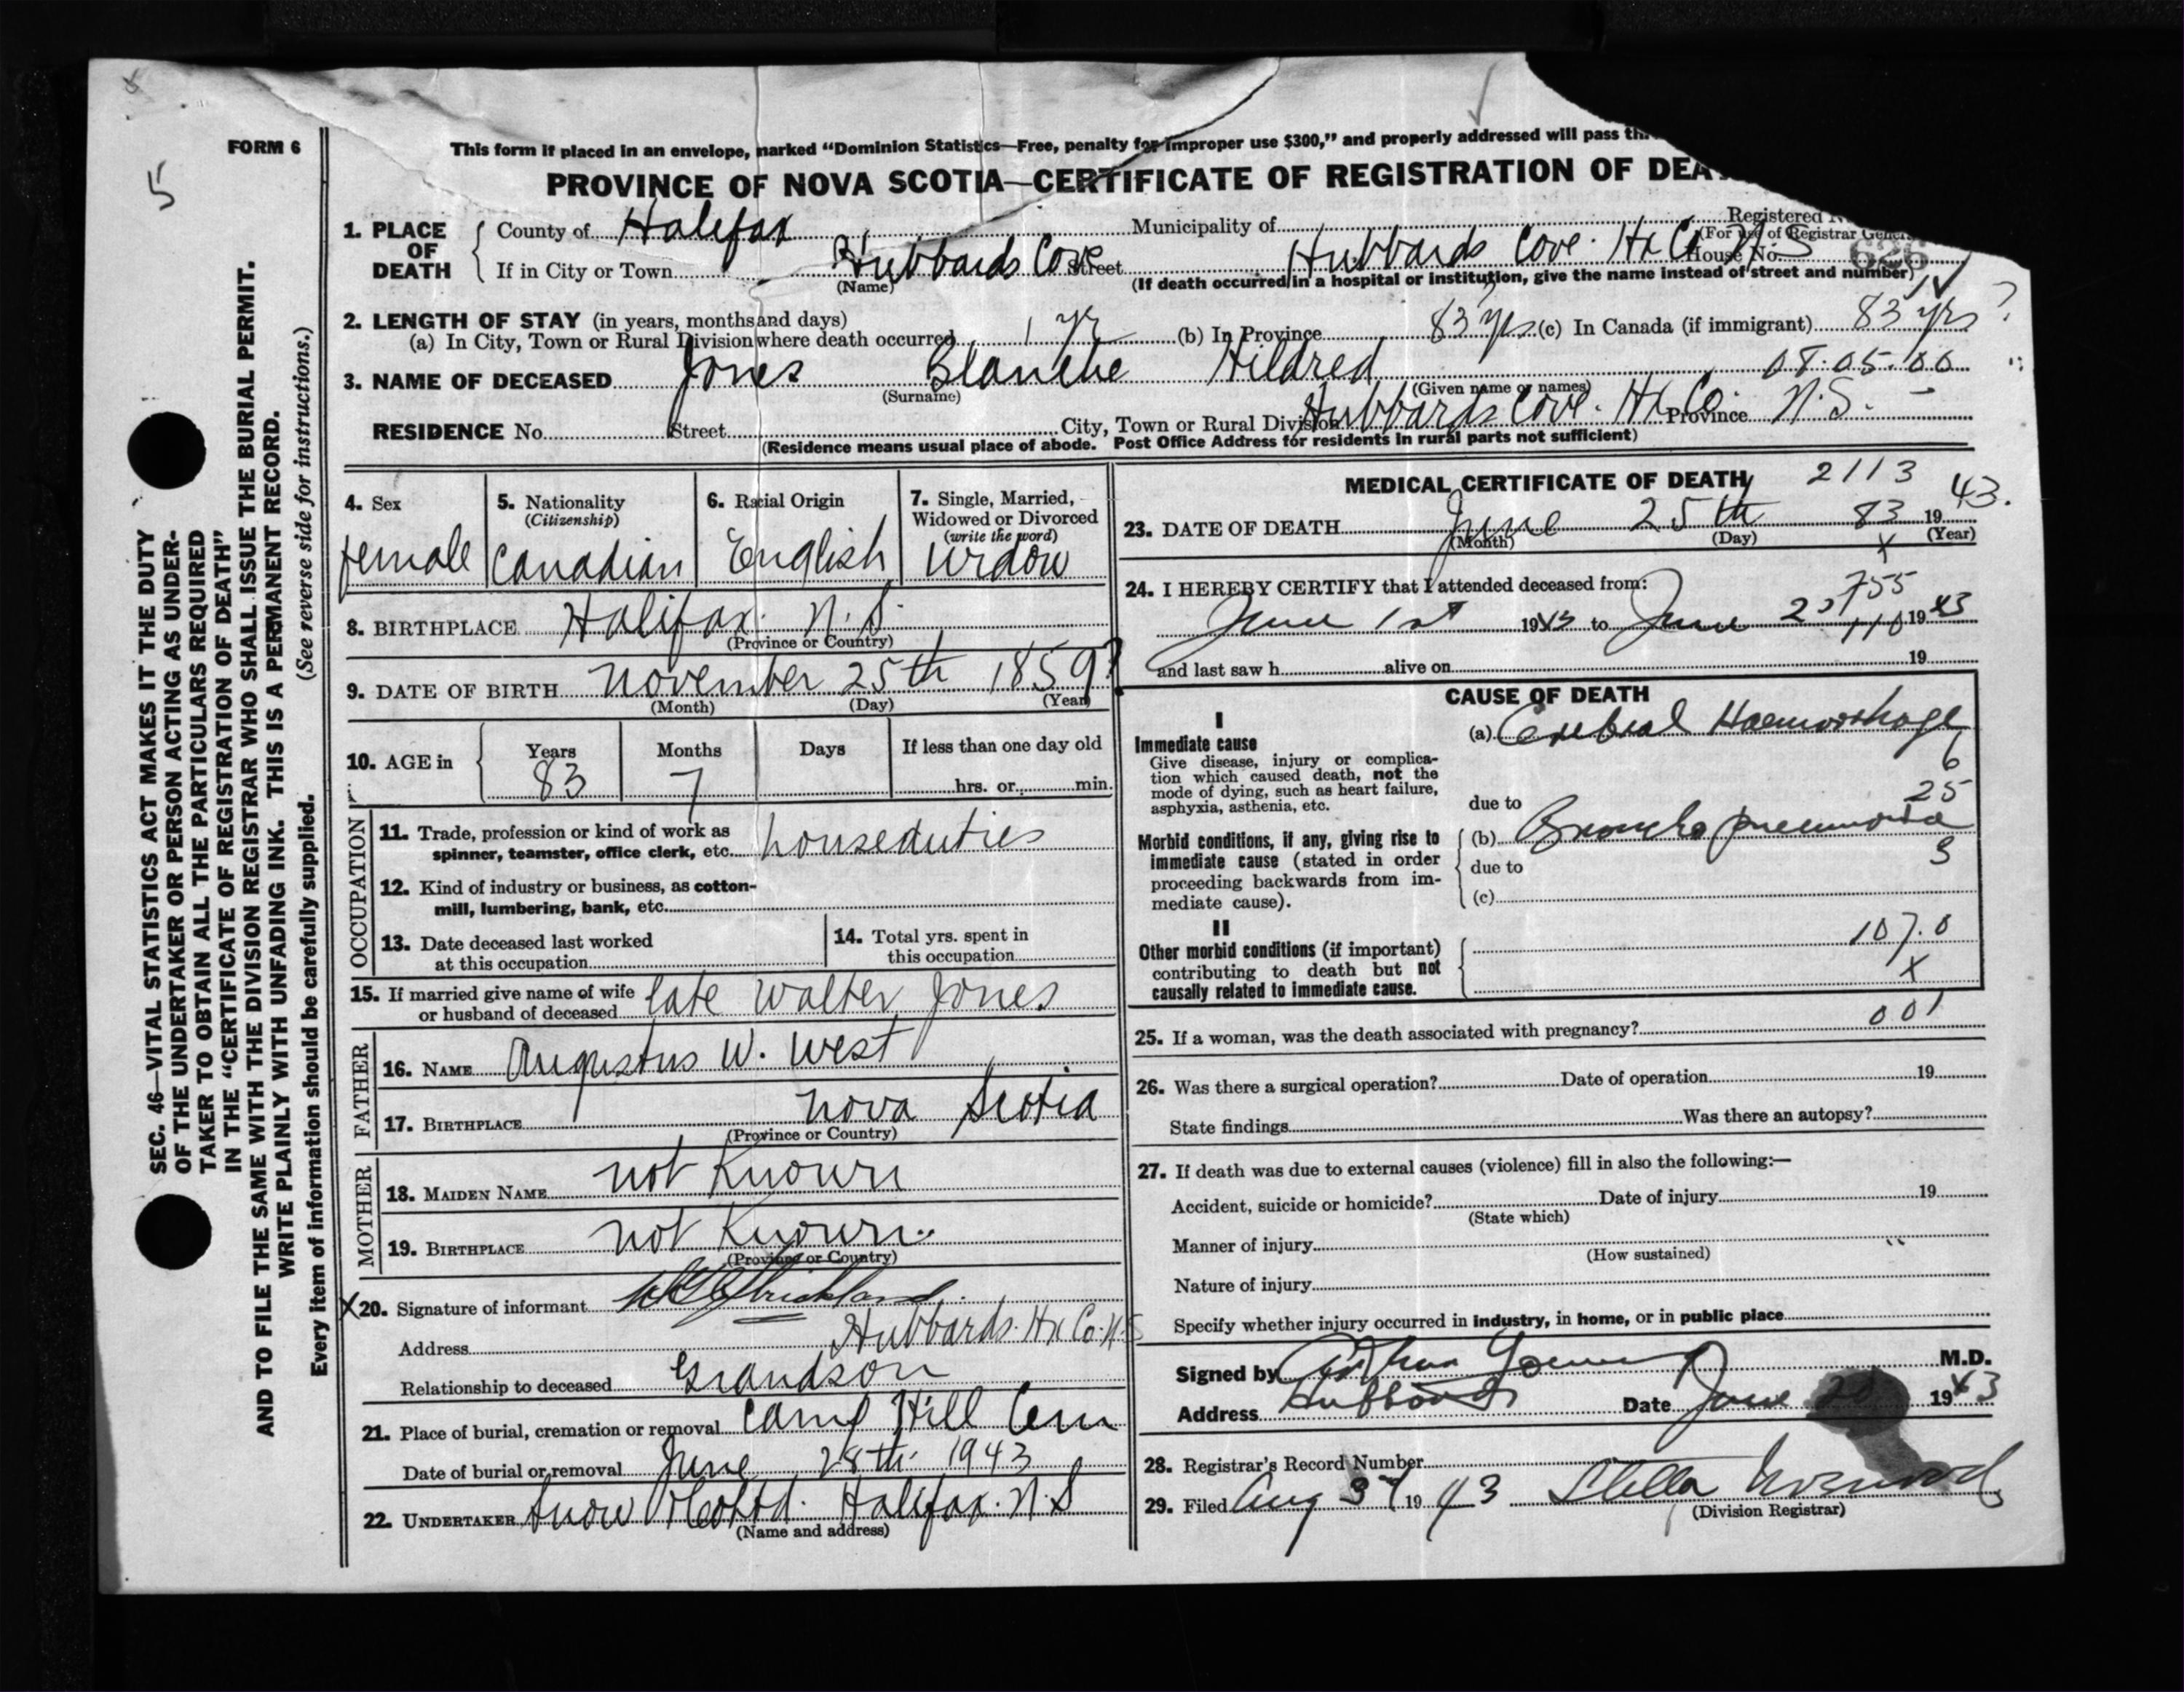 5
FORM 6
This form if placed in an envelope, marked "Dominion Statistics—Free, penalty for improper use $300," and properly addressed will pass
PROVINCE OF NOVA SCOTIA—CERTIFICATE OF REGISTRATION OF DEA
1. PLACE OF DEATH
County of Halifax Municipality of Registered
(For use of Registrar
If in City or Town Hubbards Cove Street Hubbards Cove. Hx Co. N.S House No. 626
(Name) (If death occurred in a hospital or institution, give the name instead of street and number)
2. LENGTH OF STAY (in years, months and days)
(a) In City, Town or Rural Division where death occurred 1 yr (b) In Province 83 yrs (c) In Canada (if immigrant) 83 yrs ?
3. NAME OF DECEASED Jones Blanche Hildred 08.05.00
(Surname) (Given name or names)
RESIDENCE No. Street City, Town or Rural Division Hubbards Cove. Hx Co. Province N.S.
(Residence means usual place of abode. Post Office Address for residents in rural parts not sufficient)
4. Sex female
5. Nationality (Citizenship) Canadian
6. Racial Origin English
7. Single, Married, Widowed or Divorced (write the word) widow
8. BIRTHPLACE Halifax. N.S.
(Province or Country)
9. DATE OF BIRTH November 25th 1859?
(Month) (Day) (Year)
10. AGE in Years 83 Months 7 Days If less than one day old
hrs. or min.
OCCUPATION
11. Trade, profession or kind of work as spinner, teamster, office clerk, etc. houseduties
12. Kind of industry or business, as cotton-mill, lumbering, bank, etc.
13. Date deceased last worked at this occupation
14. Total yrs. spent in this occupation
15. If married give name of wife or husband of deceased late Walter Jones
FATHER
16. NAME Augustus W. West
17. BIRTHPLACE Nova Scotia
(Province or Country)
MOTHER
18. MAIDEN NAME not Known
19. BIRTHPLACE not Known.
(Province or Country)
X 20. Signature of informant Strickland
Address Hubbards. Hx Co. N.S
Relationship to deceased Grandson
21. Place of burial, cremation or removal Camp Hill Cem
Date of burial or removal June 28th 1943
22. UNDERTAKER Snow & Co Ltd. Halifax. N.S
(Name and address)
MEDICAL CERTIFICATE OF DEATH 2113
23. DATE OF DEATH June 25th 83 1943.
(Month) (Day) (Year)
X
24. I HEREBY CERTIFY that I attended deceased from: 755
June 1st 1943 to June 110 1943
and last saw h alive on 19
CAUSE OF DEATH
I
Immediate cause
Give disease, injury or complication which caused death, not the mode of dying, such as heart failure, asphyxia, asthenia, etc.
(a) Cerebral Haemorrhage
6
25
due to
Morbid conditions, if any, giving rise to immediate cause (stated in order proceeding backwards from immediate cause).
(b) Broncho pneumonia
3
due to
(c)
II
Other morbid conditions (if important) contributing to death but not causally related to immediate cause.
107.0
X
001
25. If a woman, was the death associated with pregnancy?
26. Was there a surgical operation? Date of operation 19
State findings Was there an autopsy?
27. If death was due to external causes (violence) fill in also the following:—
Accident, suicide or homicide? Date of injury 19
(State which)
Manner of injury
(How sustained)
Nature of injury
Specify whether injury occurred in industry, in home, or in public place
Signed by Arthur Young M.D.
Address Hubbards Date June 1943
28. Registrar's Record Number
29. Filed Aug 1943 Stella
(Division Registrar)
SEC. 46—VITAL STATISTICS ACT MAKES IT THE DUTY
OF THE UNDERTAKER OR PERSON ACTING AS UNDER-
TAKER TO OBTAIN ALL THE PARTICULARS REQUIRED
IN THE "CERTIFICATE OF REGISTRATION OF DEATH"
AND TO FILE THE SAME WITH THE DIVISION REGISTRAR WHO SHALL ISSUE THE BURIAL PERMIT.
WRITE PLAINLY WITH UNFADING INK. THIS IS A PERMANENT RECORD.
Every item of information should be carefully supplied. (See reverse side for instructions.)